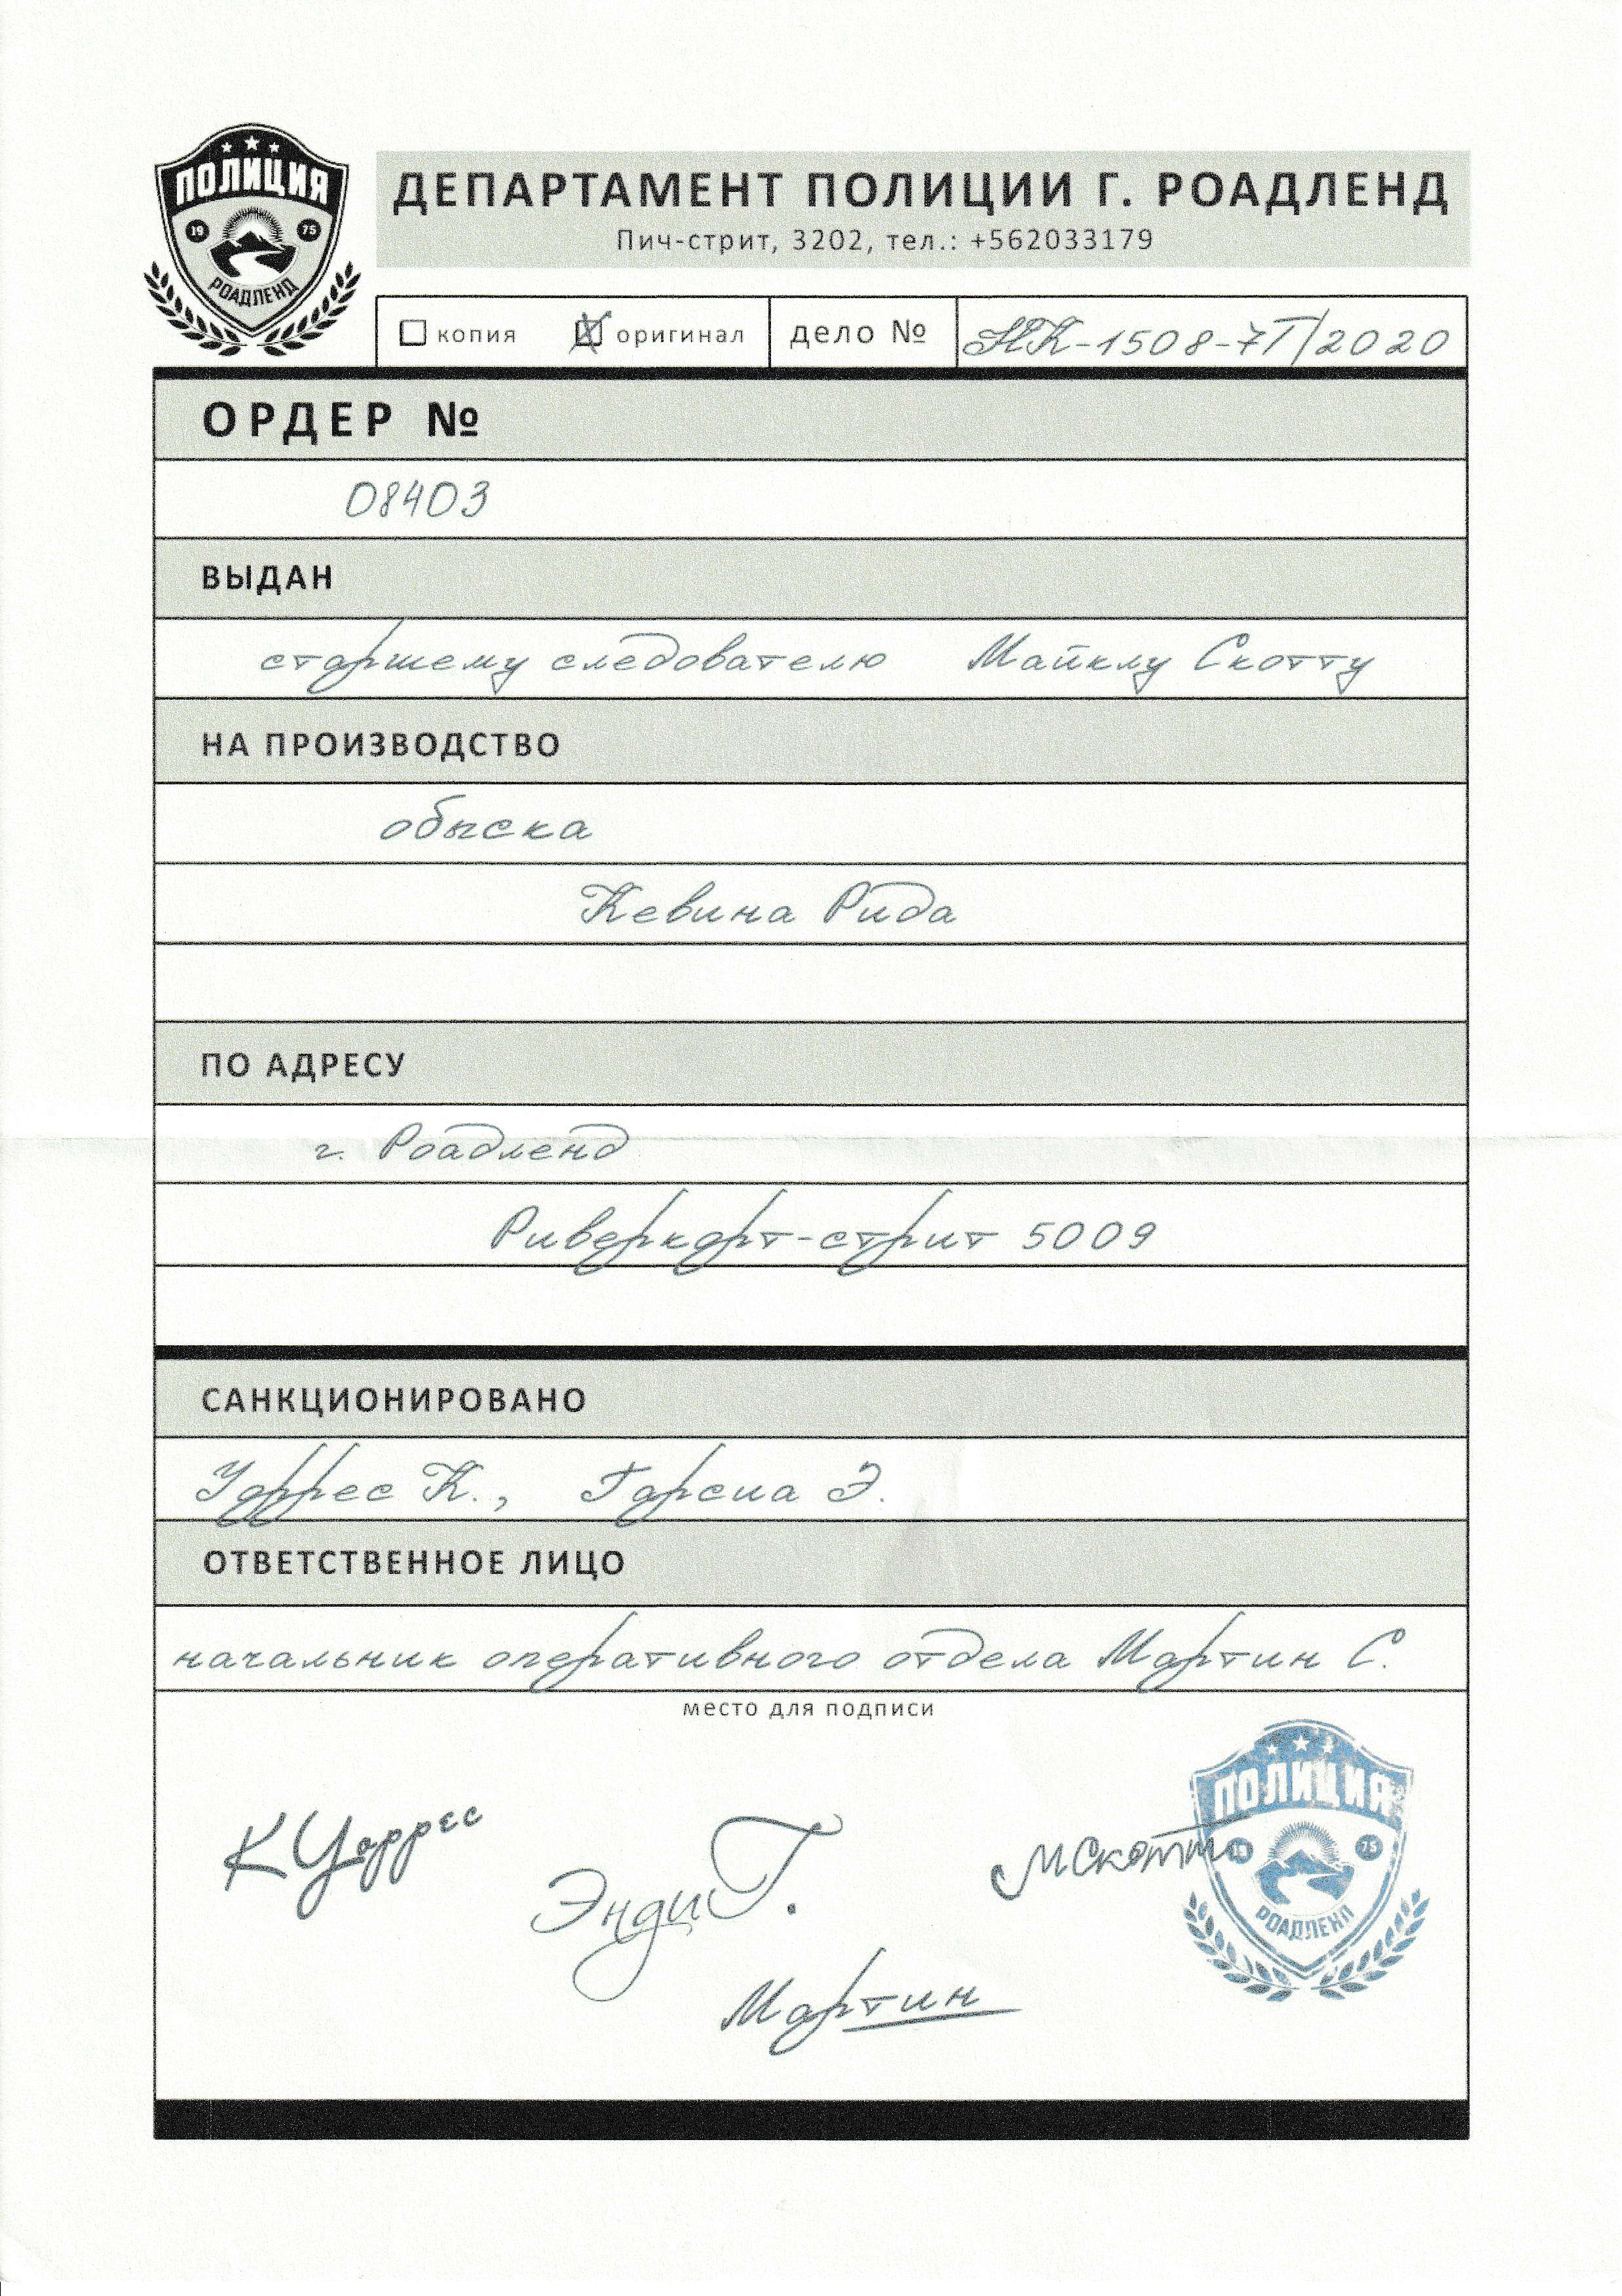 ПОЛИЦИЯ
19 75
РОАДЛЕНД
ДЕПАРТАМЕНТ ПОЛИЦИИ Г. РОАДЛЕНД
Пич-стрит, 3202, тел.: +562033179
копия оригинал дело № НК-1508-7Т/2020
ОРДЕР №
08403
ВЫДАН
старшему следователю Майклу Скотту
НА ПРОИЗВОДСТВО
обыска
Кевина Рида
ПО АДРЕСУ
г. Роадленд
Риверкорт-стрит 5009
САНКЦИОНИРОВАНО
Уоррес К., Гарсиа Э.
ОТВЕТСТВЕННОЕ ЛИЦО
начальник оперативного отдела Мартин С.
место для подписи
ПОЛИЦИЯ
К Уоррес Энди Г. МСкотт 19 75
РОАДЛЕНД
Мартин